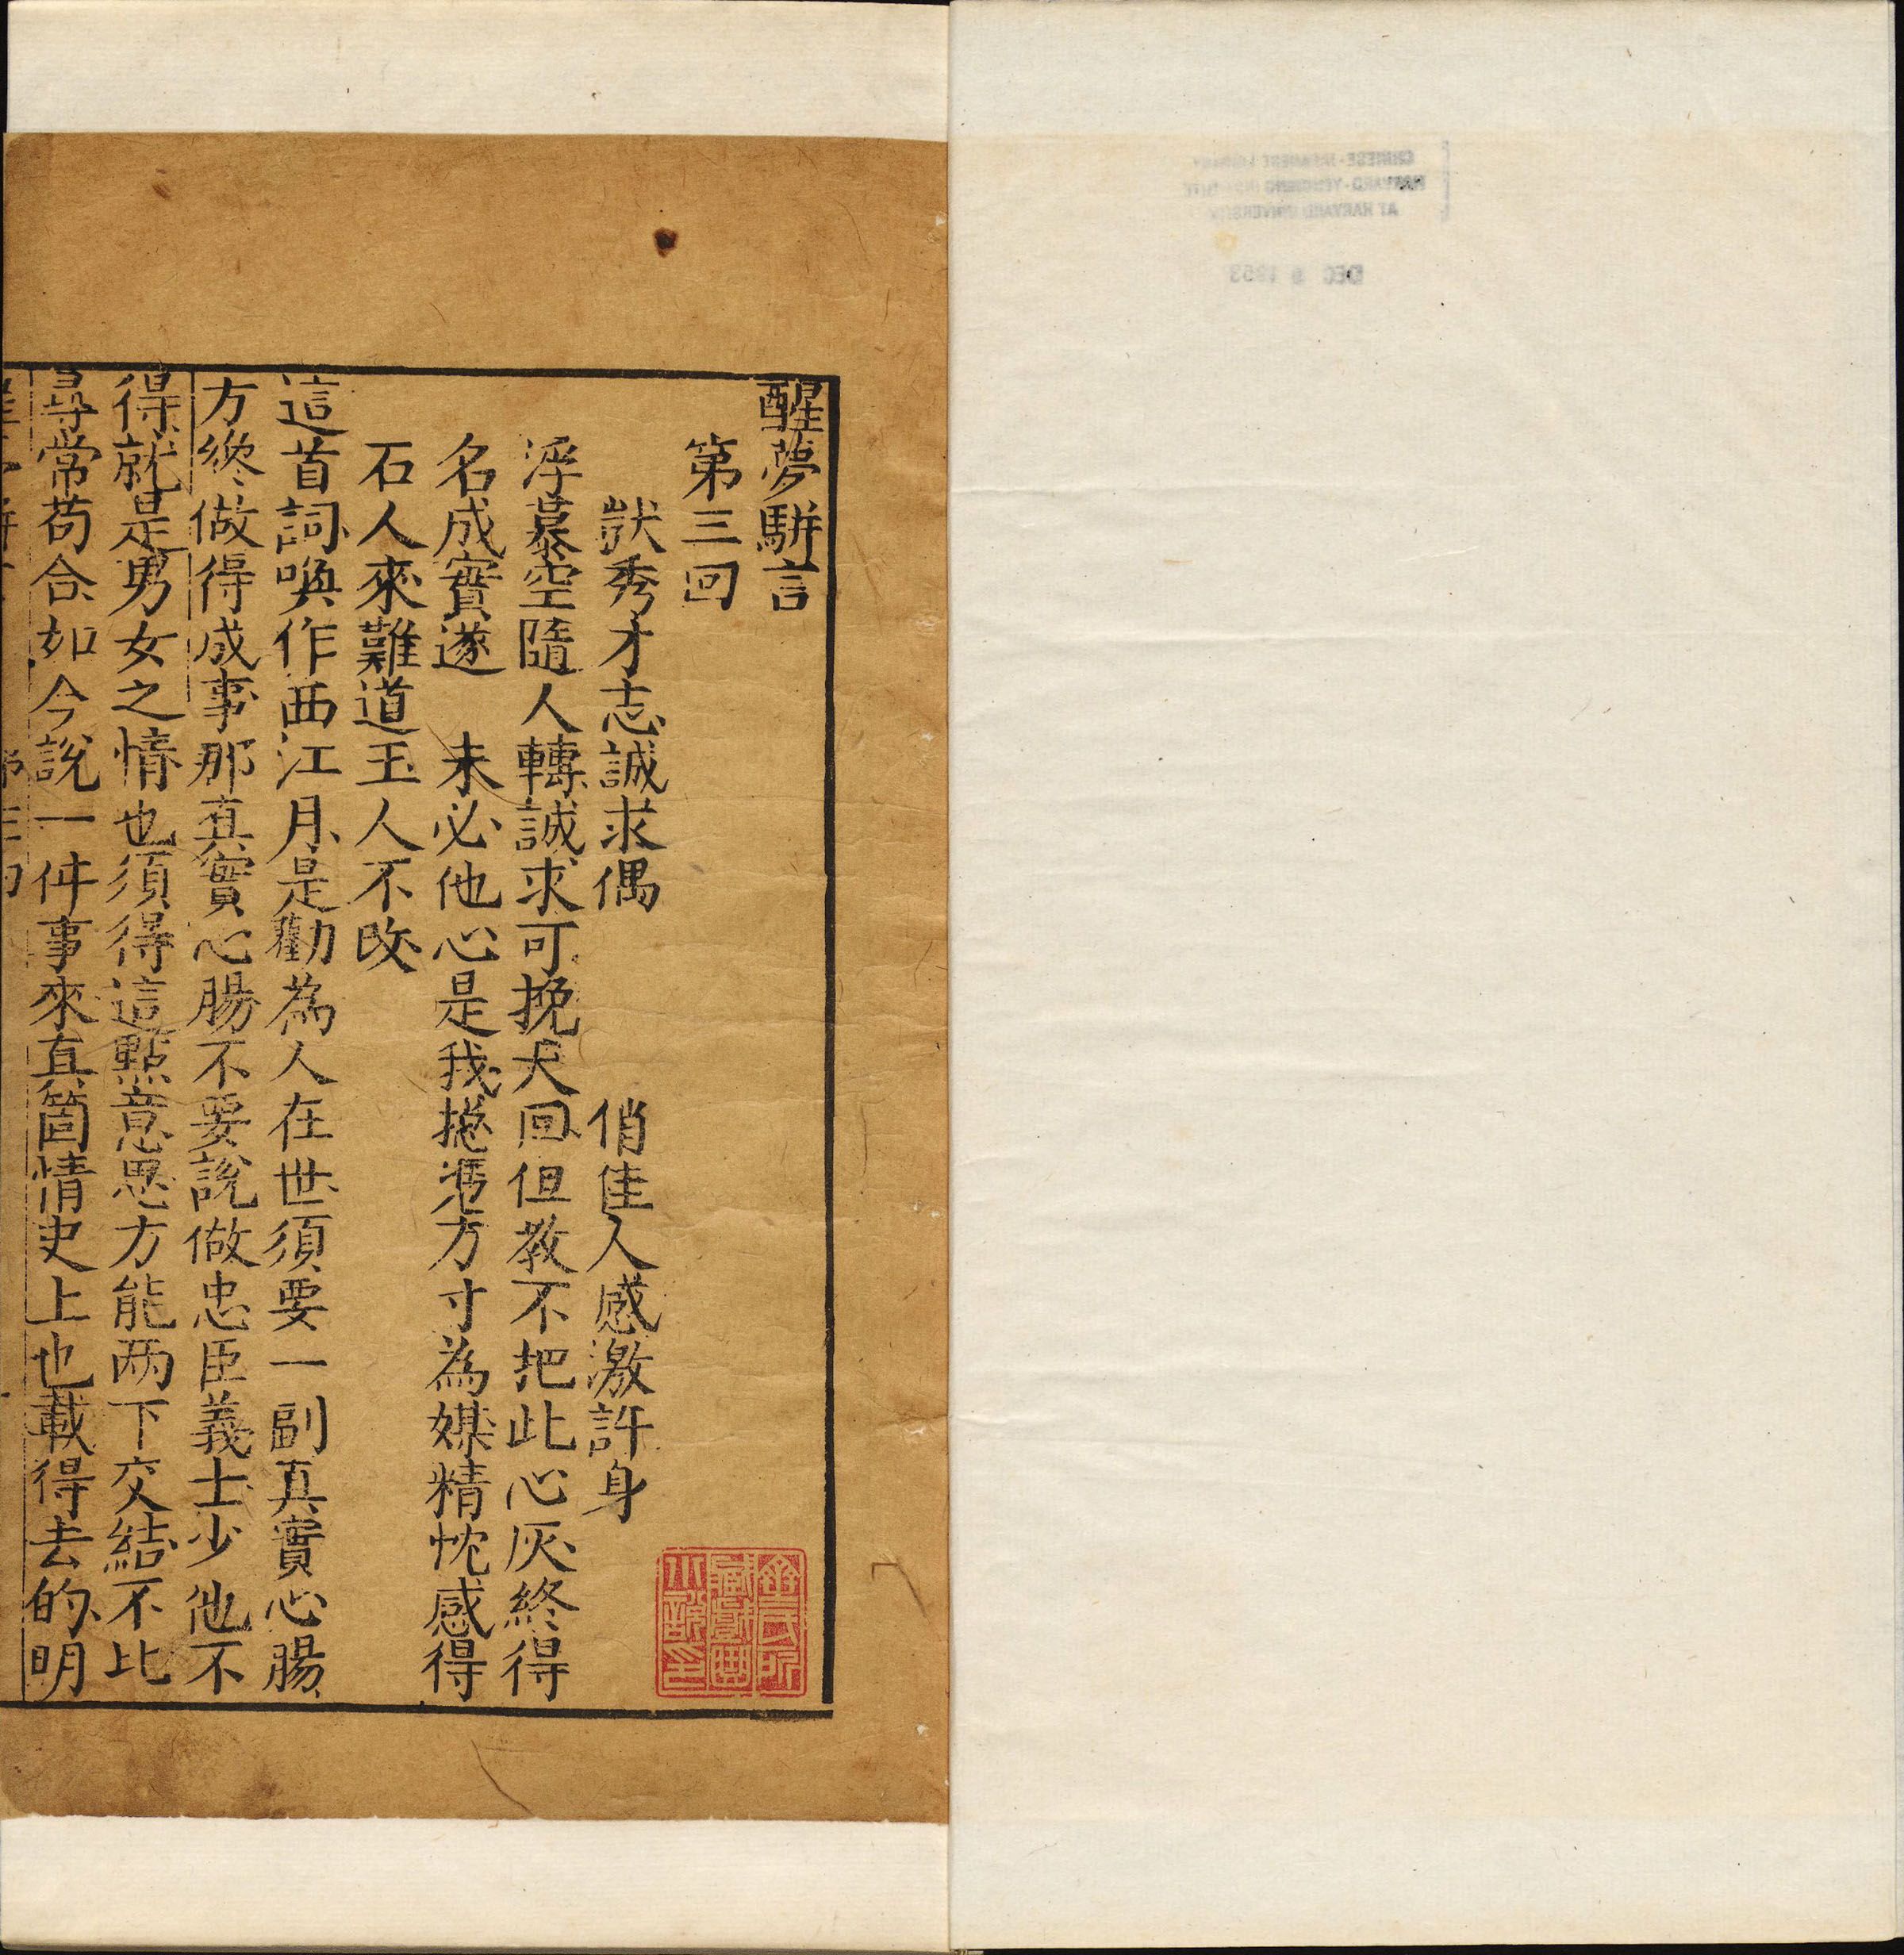 CHINESE-JAPANESE LIBRARY
HARVARD-YENCHING INSTITUTE
AT HARVARD UNIVERSITY
DEC 9 1953
醒夢駢言
第三回
獃秀才志誠求偶　俏佳人感激許身
浮慕空隨人轉誠求可挽天回但教不把此心灰終得
名成實遂　未必他心是我揔凴方寸為媒精忱感得
石人來難道玉人不改
這首詞喚作西江月是勸為人在世須要一副真實心腸
方纔做得成事那真實心腸不要說做忠臣義士少他不
得就是男女之情也須得這點意思方能两下交結不比
尋常苟合如今說一件事來真箇情史上也載得去的明
齊氏所
藏戲曲
小說印